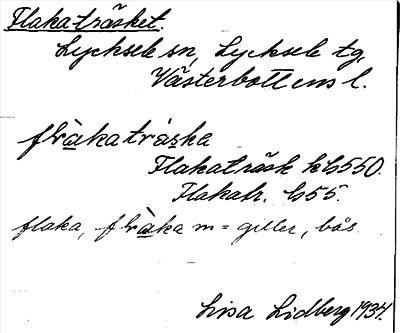 Flakaträsket.
Lycksele sn, Lycksele tg,
Västerbottens l.
flàkatráska
Flakaträsk kb 550.
Flakatr. b 55.
flaka, flàka m = giller, bås.
Lisa Lidberg 1934.